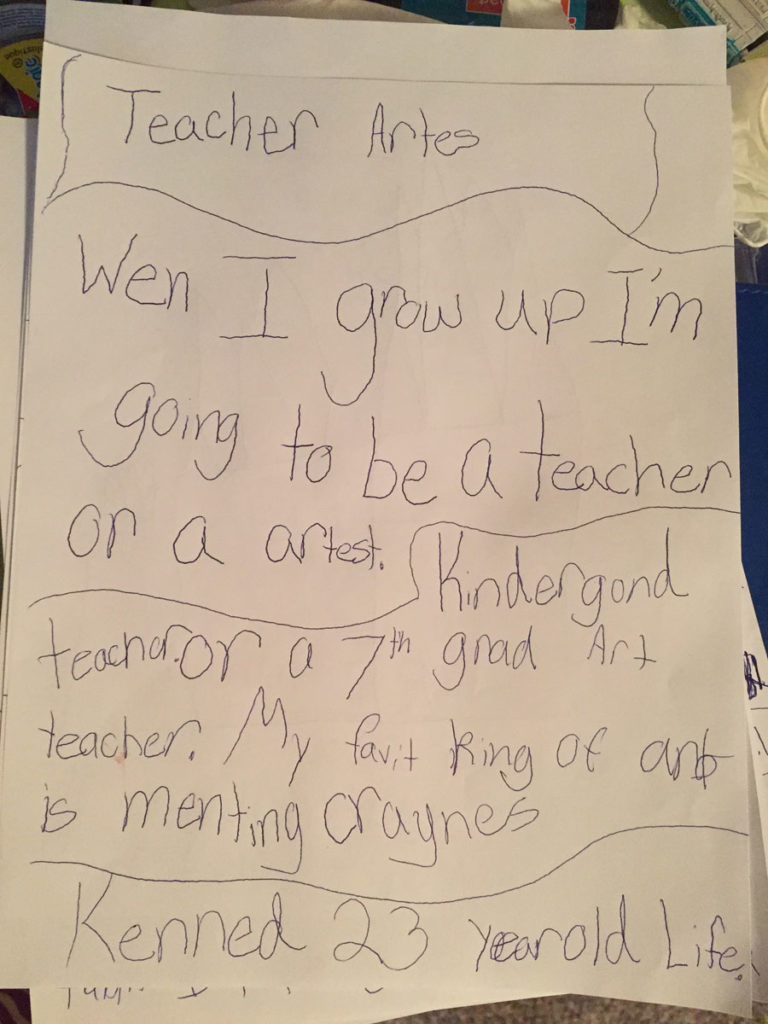 Teacher Artes
Wen I grow up I'm
going to be a teacher
or a artest.
Kindergond
teachor. or a 7th grad Art
teacher. My favit king of art
is menting craynes
Kenned 23 year old Life.